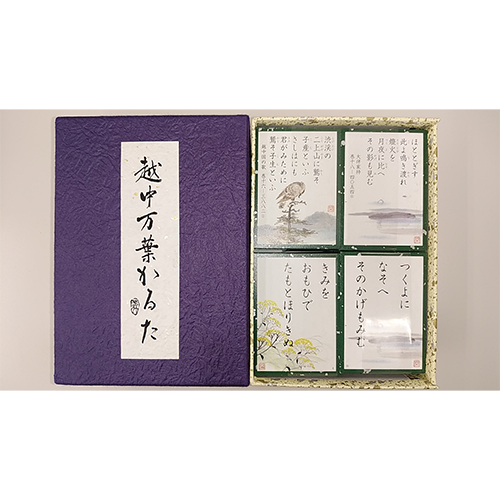 越中万葉かるた
ほととぎす
此よ鳴き渡れ
燈火を
月夜に比へ
その影も見む
大伴家持
渋渓の
二上山に鷲そ
子産といふ
さしはにも
君がみために
鷲そ子生といふ
つくよに
なそへ
そのかげもみむ
きみを
おもひで
たもとほりきぬ